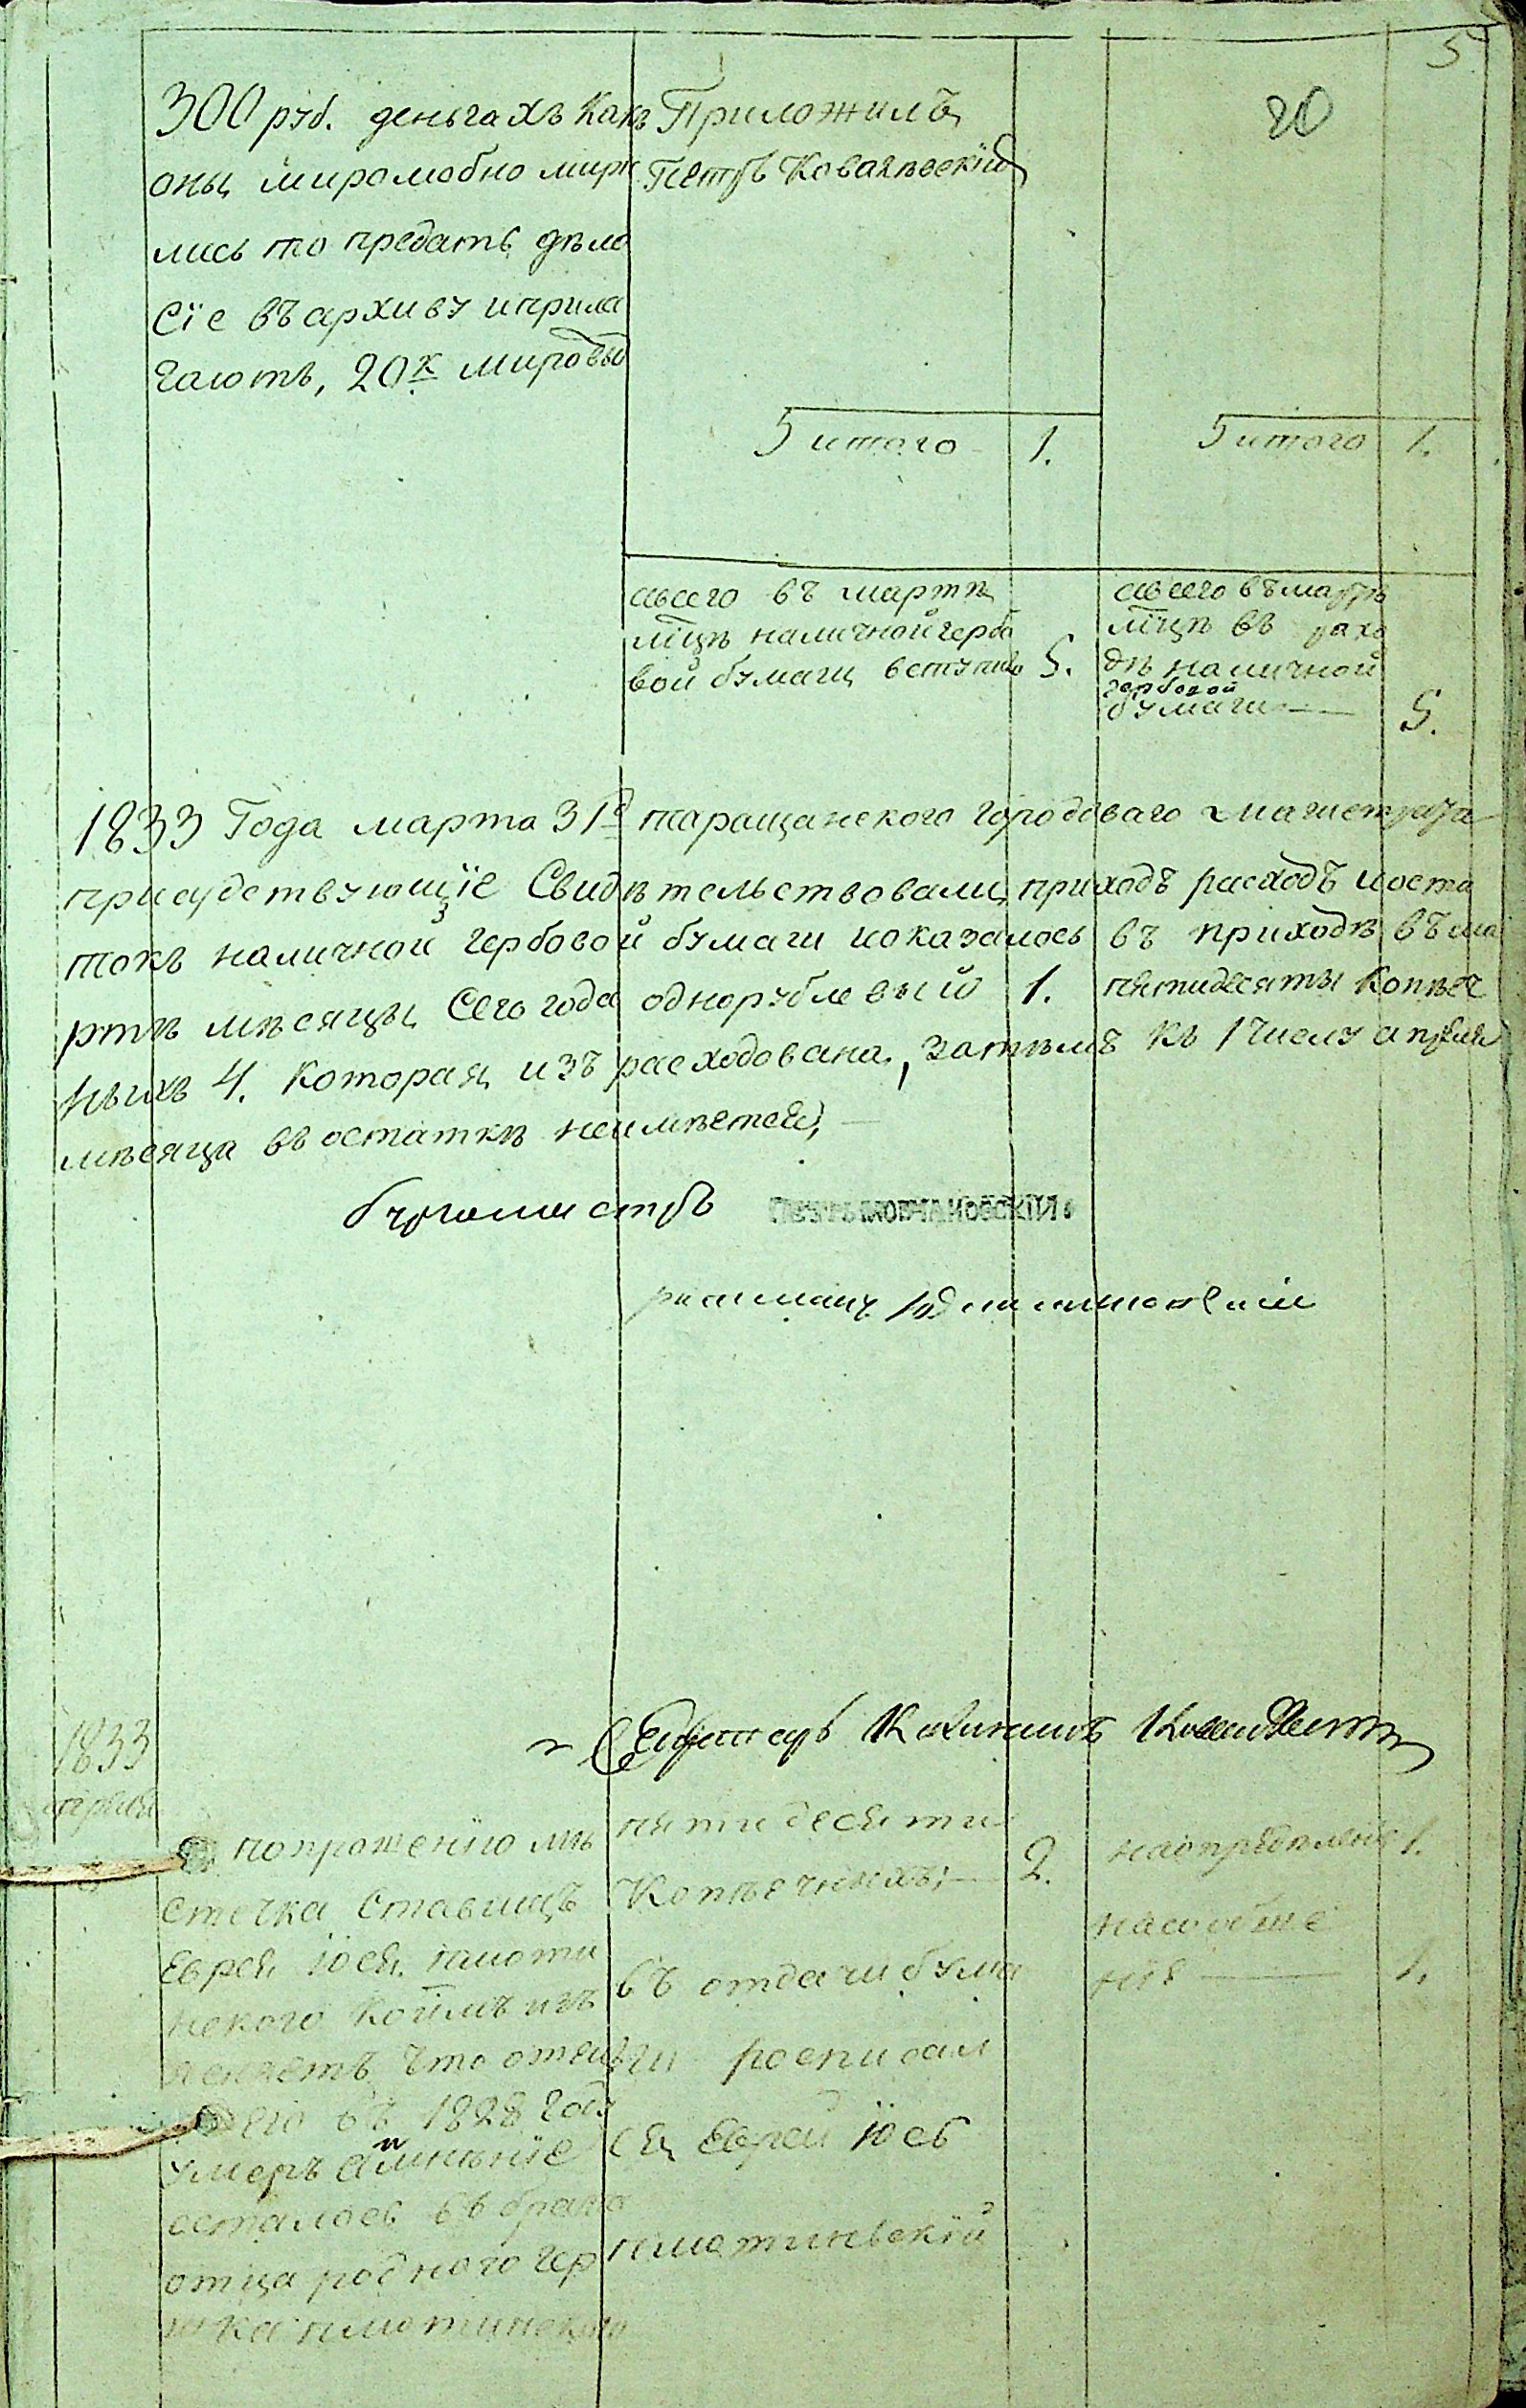 5
20
300 руб. деньгахъ Какъ
оны миролюбно мири
лись то предать дѣло
сіе въ архиву и прила
гаютъ, 20 к мировы
Приложилъ
Петръ Ковалевскій
5 итого 1.
5 итого 1.
а всего въ мартѣ
мцѣ наличной гербо
вой бумаги вступило 5.
а всего въ мартѣ
мцѣ въ расхо
дѣ наличной
гербовой
бумаги — 5.
1833 Года марта 31 таращанского городоваго магистрата
присудствующіе Свидѣтельствовали приходъ расходъ и оста
токъ наличной гербовой бумаги и оказалось въ приходѣ въ ма
ртѣ мѣсяцы Сего года однорублевый 1. пятидесяты Копѣеч
ныхъ 4. которая изъ расходована, затѣмъ къ 1 числу апрѣля
мѣсяца въ остаткѣ неимѣется, —
бургомистръ
ратманъ
1833
апрѣля
попрошенію мѣ
стечка Ставищъ
Еврея Іося
что отецъ
его въ 1828 году
умеръ а имѣніе
осталось въ брата
отца родного Гер
шка плотинского
пятидесяти
Копѣечныхъ; — 2.
въ отдачи бума
ги росписал
ся Еврей Іось
плотиньскій
наопредѣленіе 1.
насообще
ніе — 1.